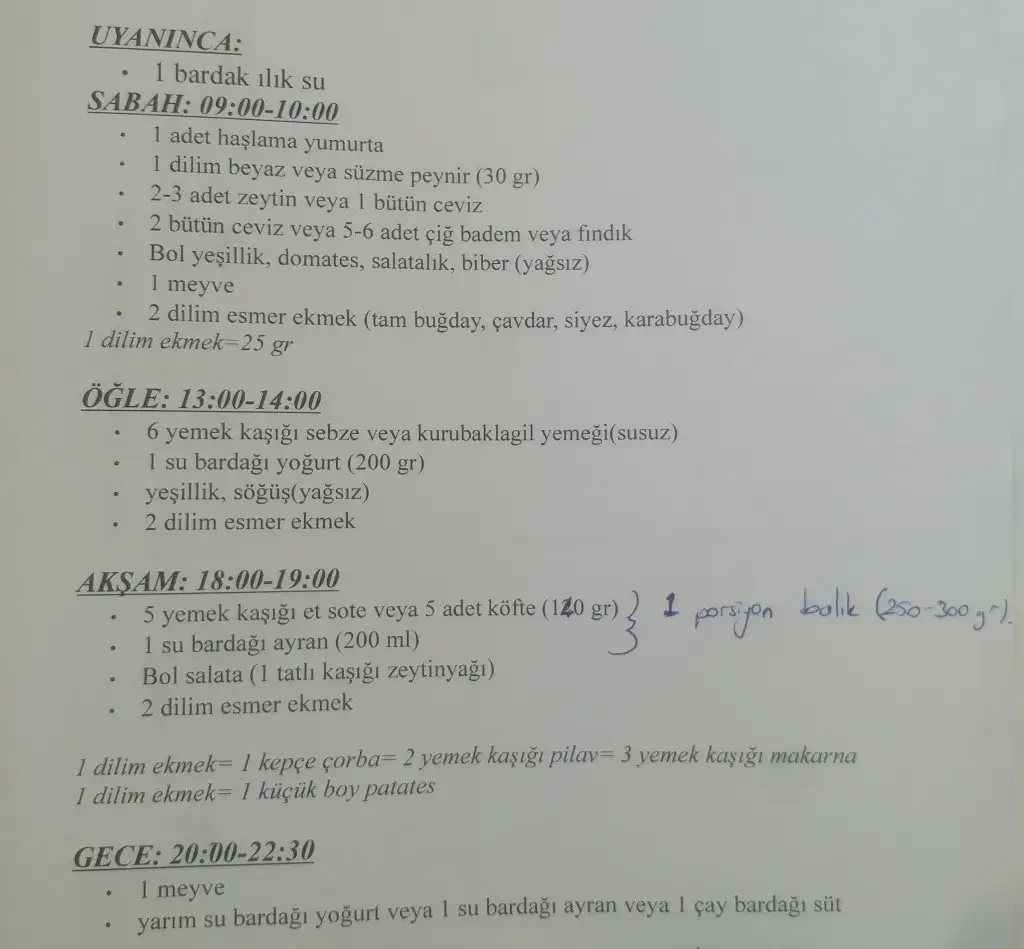 UYANINCA:
• 1 bardak ılık su
SABAH: 09:00-10:00
• 1 adet haşlama yumurta
• 1 dilim beyaz veya süzme peynir (30 gr)
• 2-3 adet zeytin veya 1 bütün ceviz
• 2 bütün ceviz veya 5-6 adet çiğ badem veya fındık
• Bol yeşillik, domates, salatalık, biber (yağsız)
• 1 meyve
• 2 dilim esmer ekmek (tam buğday, çavdar, siyez, karabuğday)
1 dilim ekmek=25 gr
ÖĞLE: 13:00-14:00
• 6 yemek kaşığı sebze veya kurubaklagil yemeği(susuz)
• 1 su bardağı yoğurt (200 gr)
• yeşillik, söğüş(yağsız)
• 2 dilim esmer ekmek
AKŞAM: 18:00-19:00
• 5 yemek kaşığı et sote veya 5 adet köfte (120 gr) } 1 porsiyon balık (250-300 gr).
• 1 su bardağı ayran (200 ml)
• Bol salata (1 tatlı kaşığı zeytinyağı)
• 2 dilim esmer ekmek
1 dilim ekmek= 1 kepçe çorba= 2 yemek kaşığı pilav= 3 yemek kaşığı makarna
1 dilim ekmek= 1 küçük boy patates
GECE: 20:00-22:30
• 1 meyve
• yarım su bardağı yoğurt veya 1 su bardağı ayran veya 1 çay bardağı süt